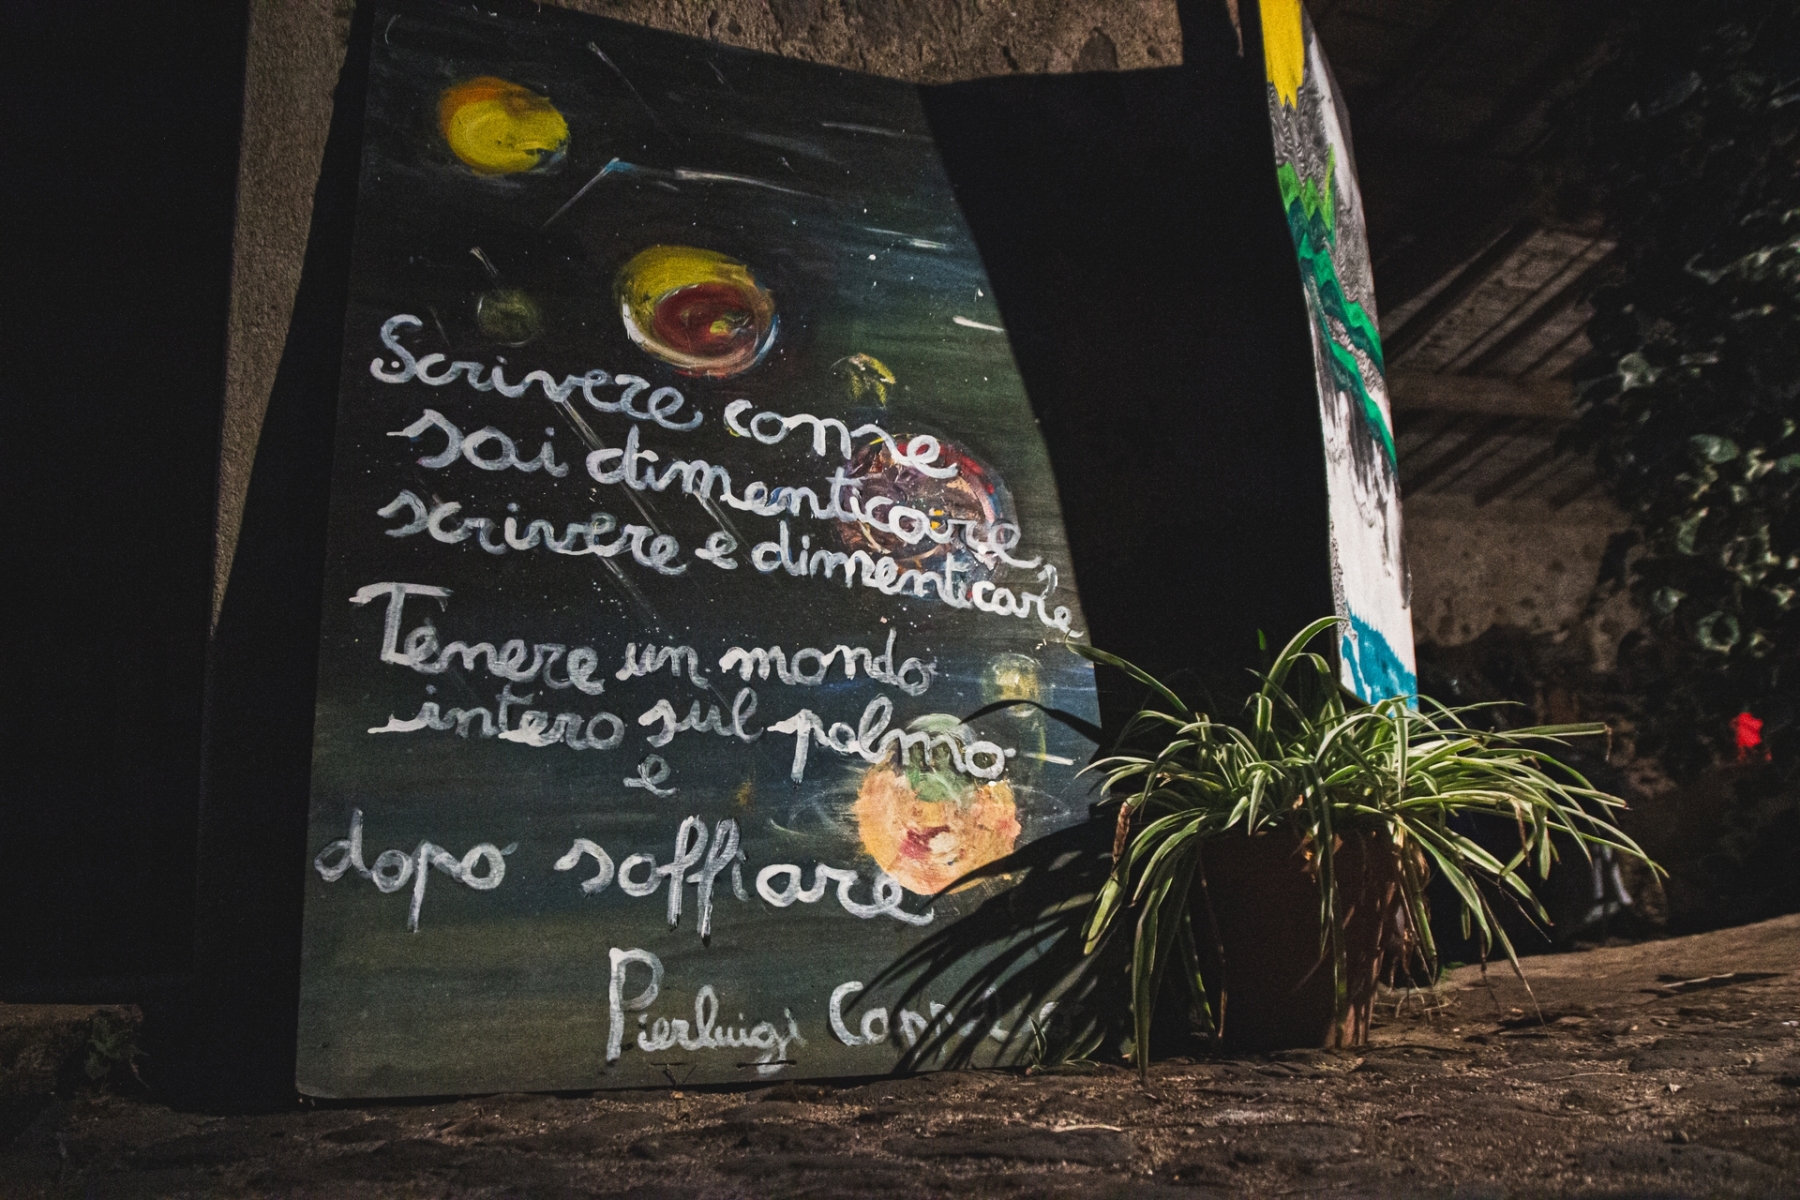 Scrivere come
sai dimenticare,
scrivere e dimenticare
Tenere un mondo
intero sul palmo
e
dopo soffiare
Pierluigi